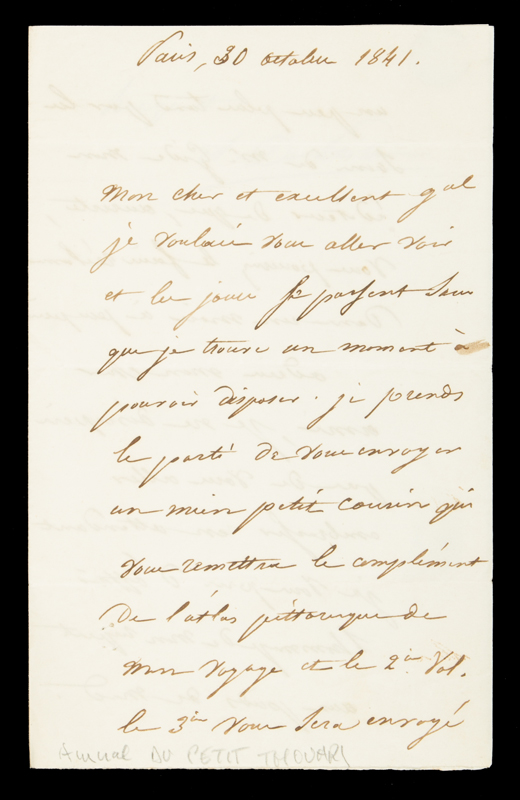 Paris, 30 octobre 1841.
Mon cher et excellent gal
je voulais vous aller voir
et les jours se passent sans
que je trouve un moment à
pouvoir disposer. je prends
le parti de vous envoyer
un mien petit cousin qui
vous remettra le complément
De l'atlas pittoresque de
mon voyage et le 2ie Vol.
le 3ie vous sera envoyé
Amiral DU PETIT THOUARS